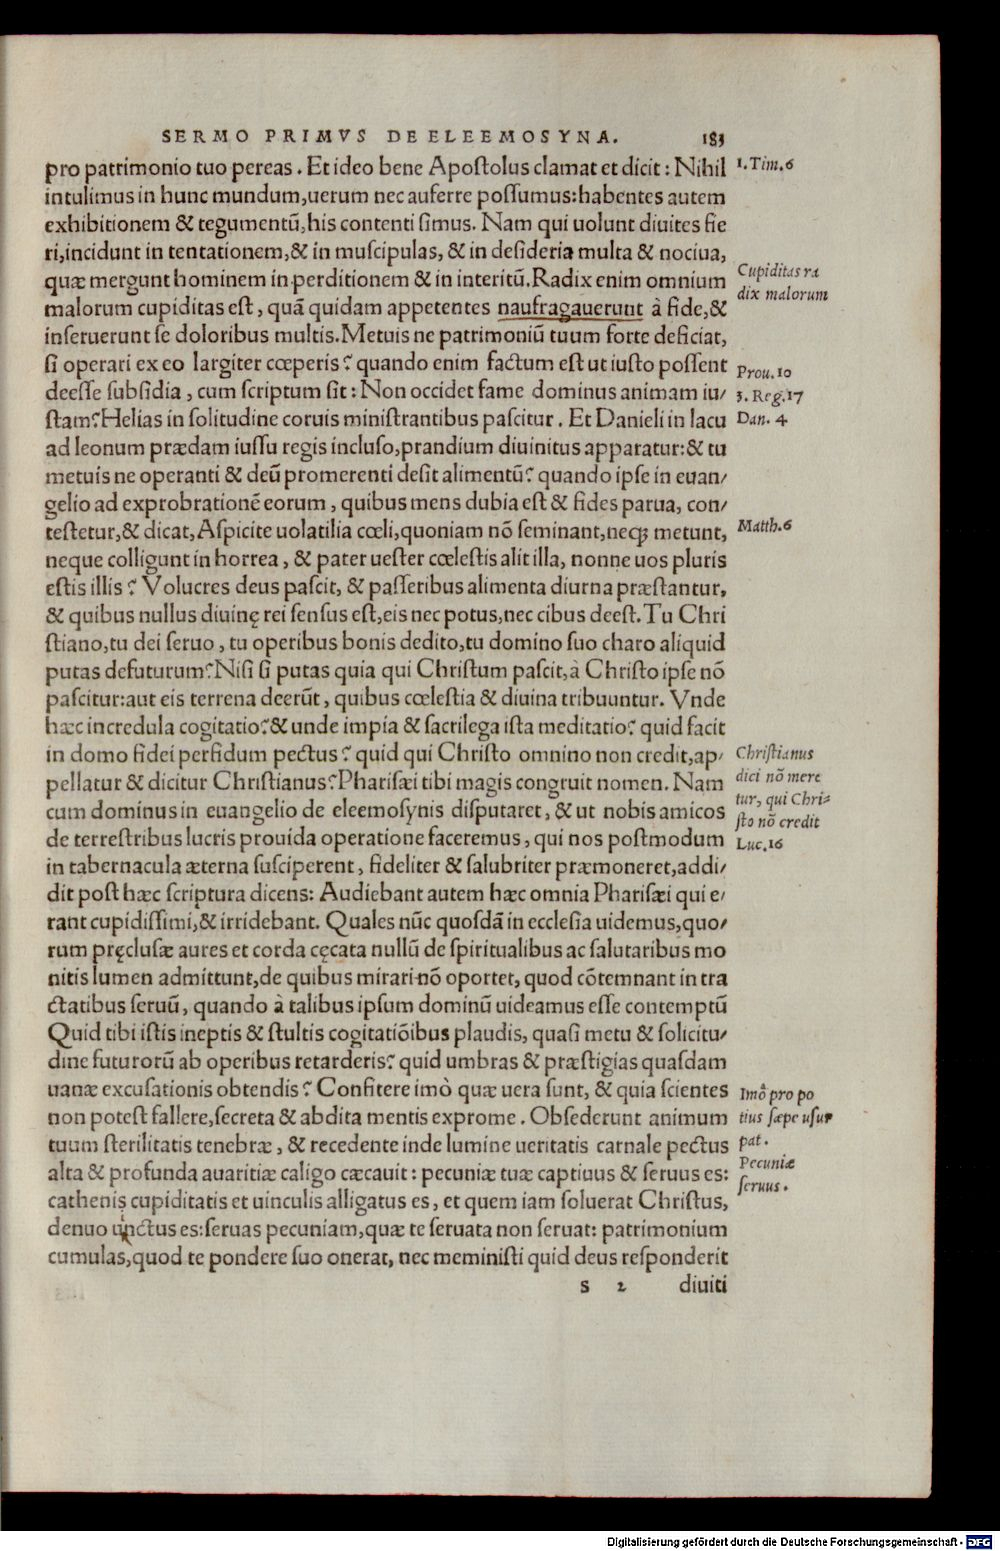 SERMO PRIMVS DE ELEEMOSYNA. 183
pro patrimonio tuo pereas. Et ideo bene Apostolus clamat et dicit: Nihil
intulimus in hunc mundum,uerum nec auferre possumus:habentes autem
exhibitionem & tegumentũ,his contenti simus. Nam qui uolunt diuites fie
ri,incidunt in tentationem,& in muscipulas, & in desideria multa & nociua,
quæ mergunt hominem in perditionem & in interitũ.Radix enim omnium
malorum cupiditas est, quã quidam appetentes naufragauerunt à fide,&
inseruerunt se doloribus multis.Metuis ne patrimoniũ tuum forte deficiat,
si operari ex eo largiter cœperis? quando enim factum est ut iusto possent
deesse subsidia, cum scriptum sit: Non occidet fame dominus animam iu/
stam?Helias in solitudine coruis ministrantibus pascitur. Et Danieli in lacu
ad leonum prædam iussu regis incluso,prandium diuinitus apparatur:& tu
metuis ne operanti & deũ promerenti desit alimentũ? quando ipse in euan/
gelio ad exprobrationẽ eorum, quibus mens dubia est & fides parua, con/
testetur,& dicat, Aspicite uolatilia cœli,quoniam nõ seminant,neqꝫ metunt,
neque colligunt in horrea, & pater uester cœlestis alit illa, nonne uos pluris
estis illis? Volucres deus pascit, & passeribus alimenta diurna præstantur,
& quibus nullus diuinę rei sensus est,eis nec potus,nec cibus deest. Tu Chri
stiano,tu dei seruo, tu operibus bonis dedito,tu domino suo charo aliquid
putas defuturum?Nisi si putas quia qui Christum pascit,à Christo ipse nõ
pascitur:aut eis terrena deerũt, quibus cœlestia & diuina tribuuntur. Vnde
hæc incredula cogitatio?& unde impia & sacrilega ista meditatio? quid facit
in domo fidei perfidum pectus? quid qui Christo omnino non credit,ap/
pellatur & dicitur Christianus?Pharisæi tibi magis congruit nomen. Nam
cum dominus in euangelio de eleemosynis disputaret, & ut nobis amicos
de terrestribus lucris prouida operatione faceremus, qui nos postmodum
in tabernacula æterna susciperent, fideliter & salubriter præmoneret,addi/
dit post hæc scriptura dicens: Audiebant autem hæc omnia Pharisæi qui e/
rant cupidissimi,& irridebant. Quales nũc quosdã in ecclesia uidemus,quo/
rum pręclusæ aures et corda cęcata nullũ de spiritualibus ac salutaribus mo
nitis lumen admittunt,de quibus mirari nõ oportet, quod cõtemnant in tra
ctatibus seruũ, quando à talibus ipsum dominũ uideamus esse contemptũ
Quid tibi istis ineptis & stultis cogitatiõibus plaudis, quasi metu & solicitu/
dine futurorũ ab operibus retarderis? quid umbras & præstigias quasdam
uanæ excusationis obtendis? Confitere imò quæ uera sunt, & quia scientes
non potest fallere,secreta & abdita mentis exprome. Obsederunt animum
tuum sterilitatis tenebræ, & recedente inde lumine ueritatis carnale pectus
alta & profunda auaritiæ caligo cæcauit: pecuniæ tuæ captiuus & seruus es:
cathenis cupiditatis et uinculis alligatus es, et quem iam soluerat Christus,
denuo uinctus es:seruas pecuniam,quæ te seruata non seruat: patrimonium
cumulas,quod te pondere suo onerat, nec meministi quid deus responderit
s 2 diuiti
1. Tim.6
Cupiditas ra
dix malorum
Prou.10
3. Reg.17
Dan. 4
Matth.6
Christianus
dici nõ mere
tur, qui Chri-
sto nõ credit
Luc.16
Imò pro po
tius sæpe usur
pat.
Pecuniæ
seruus.
Digitalisierung gefördert durch die Deutsche Forschungsgemeinschaft - DFG